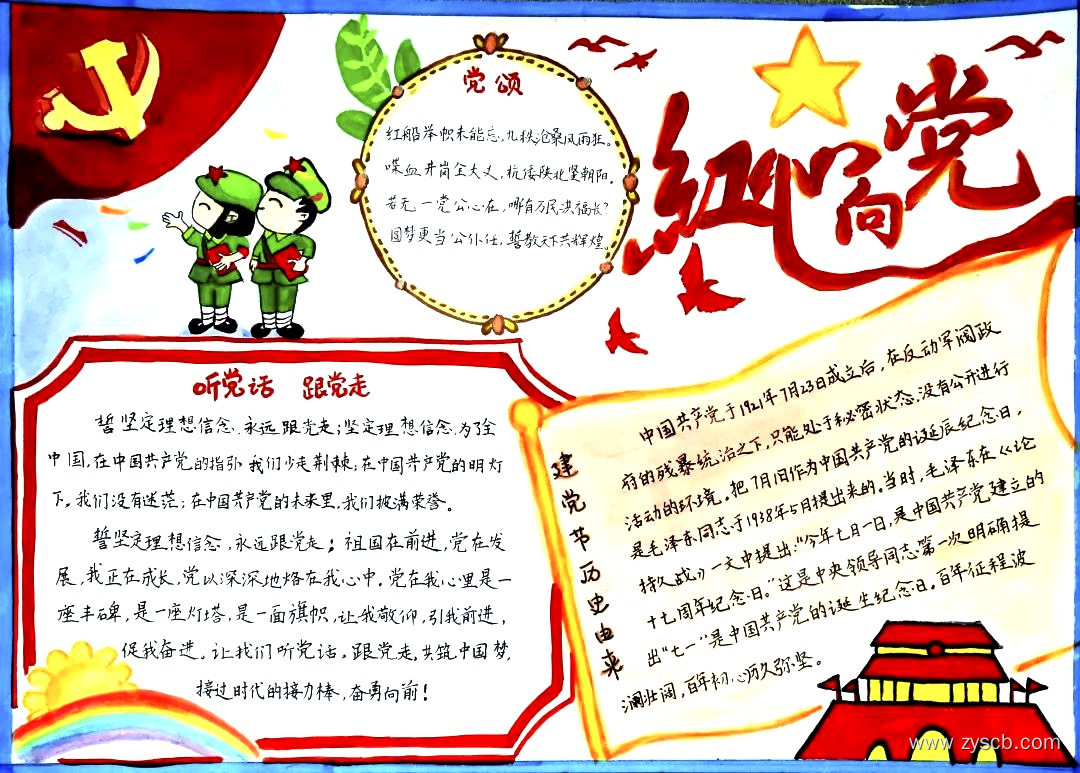 红心向党
党颂
红船举帜未能忘,九秩沧桑风雨狂。
喋血井岗全大义,抗倭陕北坚朝阳。
若无一党公心在,哪有万民洪福长?
圆梦更当公仆任,誓教天下共辉煌。
听党话 跟党走
誓坚定理想信念、永远跟党走;坚定理想信念、为了全
中国,在中国共产党的指引 我们少走荆棘;在中国共产党的明灯
下,我们没有迷茫;在中国共产党的未来里,我们披满荣誉。
誓坚定理想信念,永远跟党走;祖国在前进,党在发
展,我正在成长,党以深深地烙在我心中,党在我心里是一
座丰碑,是一座灯塔,是一面旗帜,让我敬仰,引我前进,
促我奋进。让我们听党话,跟党走,共筑中国梦,
接过时代的接力棒,奋勇向前!
建党节历史由来
中国共产党于1921年7月23日成立后,在反动军阀政
府的残暴统治之下,只能处于秘密状态,没有公开进行
活动的环境。把7月1日作为中国共产党的诞辰纪念日,
是毛泽东同志于1938年5月提出来的。当时,毛泽东在《论
持久战》一文中提出:“今年七月一日,是中国共产党建立的
十七周年纪念日。”这是中央领导同志第一次明确提
出“七一”是中国共产党的诞生纪念日。百年征程波
澜壮阔,百年初心历久弥坚。
www.zyscb.com